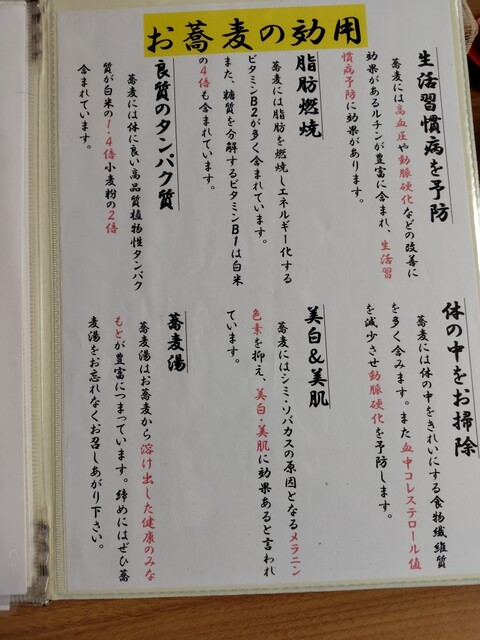 お蕎麦の効用
生活習慣病を予防
蕎麦には高血圧や動脈硬化などの改善に
効果があるルチンが豊富に含まれ、生活習
慣病予防に効果があります。
脂肪燃焼
蕎麦には脂肪を燃焼しエネルギー化する
ビタミンB2が多く含まれています。
また、糖質を分解するビタミンB1は白米
の4倍も含まれています。
良質のタンパク質
蕎麦には体に良い高品質植物性タンパク
質が白米の1.4倍小麦粉の2倍
含まれています。
体の中をお掃除
蕎麦には体の中をきれいにする食物繊維質
を多く含みます。また血中コレステロール値
を減少させ動脈硬化を予防します。
美白&美肌
蕎麦にはシミ・ソバカスの原因となるメラニン
色素を抑え、美白・美肌に効果あると言われ
ています。
蕎麦湯
蕎麦湯はお蕎麦から溶け出した健康のみな
もとが豊富につまっています。締めにはぜひ蕎
麦湯をお忘れなくお召しあがり下さい。